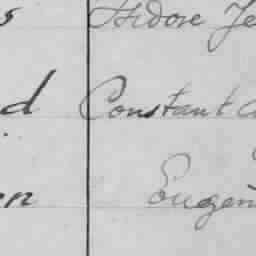 s Isidore Je
d Constant
en Eugen